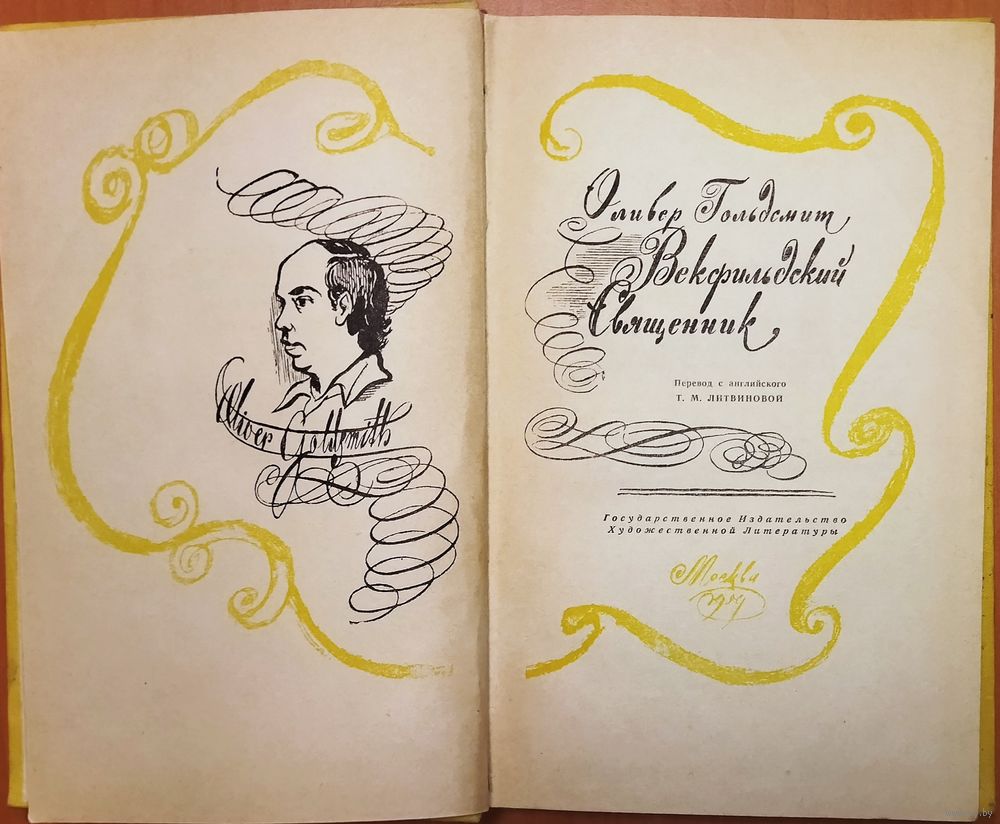 Oliver Goldsmith
Оливер Гольдсмит
Векфильдский
Священник
Перевод с английского
Т. М. ЛИТВИНОВОЙ
Государственное Издательство
Художественной Литературы
Москва